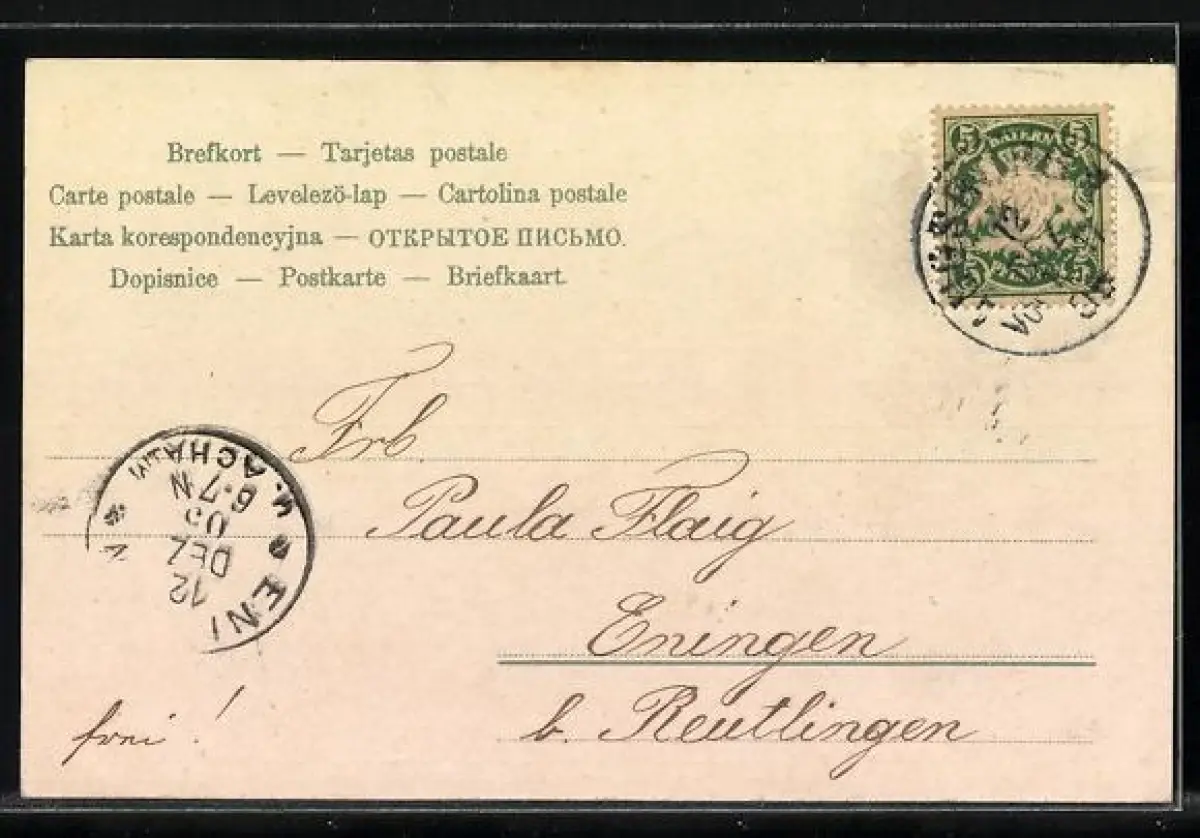 Brefkort — Tarjetas postale
Carte postale — Levelező-lap — Cartolina postale
Karta korespondencyjna — ОТКРЫТОЕ ПИСЬМО.
Dopisnice — Postkarte — Briefkaart.
5 BAYERN 5
12
VOR
5 5
Frl.
Paula Flaig
Eningen
b. Reutlingen
frei!
ENI
U. ACHALM
12
DEZ
05
6-7 N